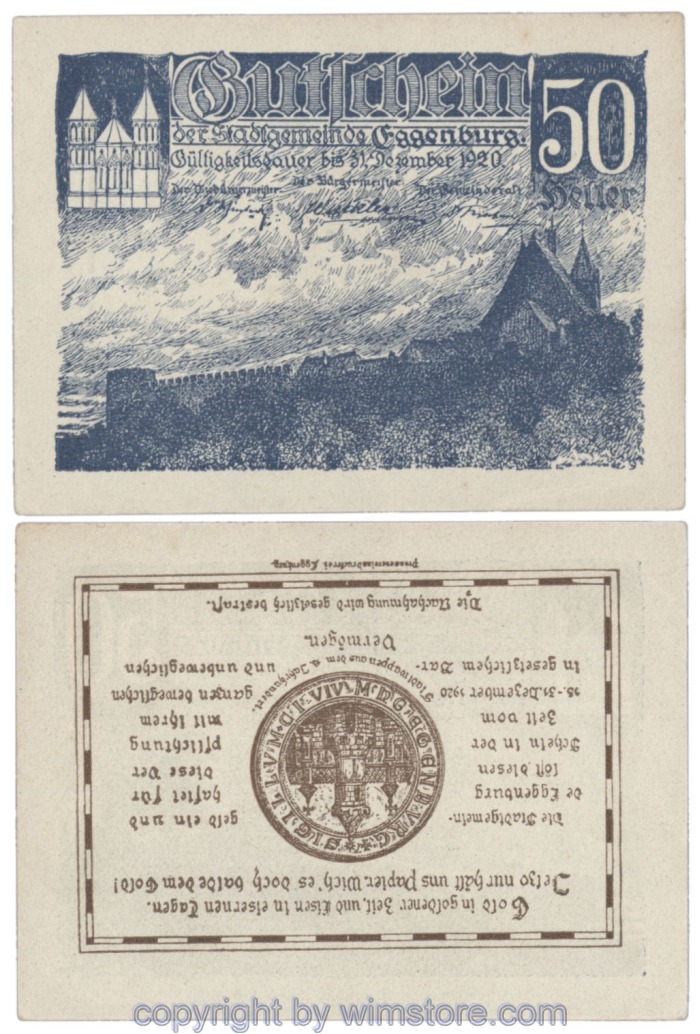 Gutschein
der Stadtgemeinde Eggenburg.
Gültigkeitsdauer bis 31. Dezember 1920
50
Heller
Der Bürgermeister
Der Gemeinderat
Gold in goldener Zeit, und Eisen in eisernen Tagen.
Jetzo nur hält uns Papier. Wich' es doch balde dem Gold!
Die Stadtgemein-
de Eggenburg
löst diesen
Schein in der
Zeit vom
15.-31. Dezember 1920
in gesetzlichem Bar-
geld ein und
haftet für
diese Ver
pflichtung
mit ihrem
ganzen beweglichen
und unbeweglichen
Vermögen.
SIGILLVM CIVIVM DE EGENBVRG
Stadtwappen aus dem Jahrhundert.
Die Nachahmung wird gesetzlich bestraft.
Pressvereinsdruckerei Eggenburg.
copyright by wimstore.com